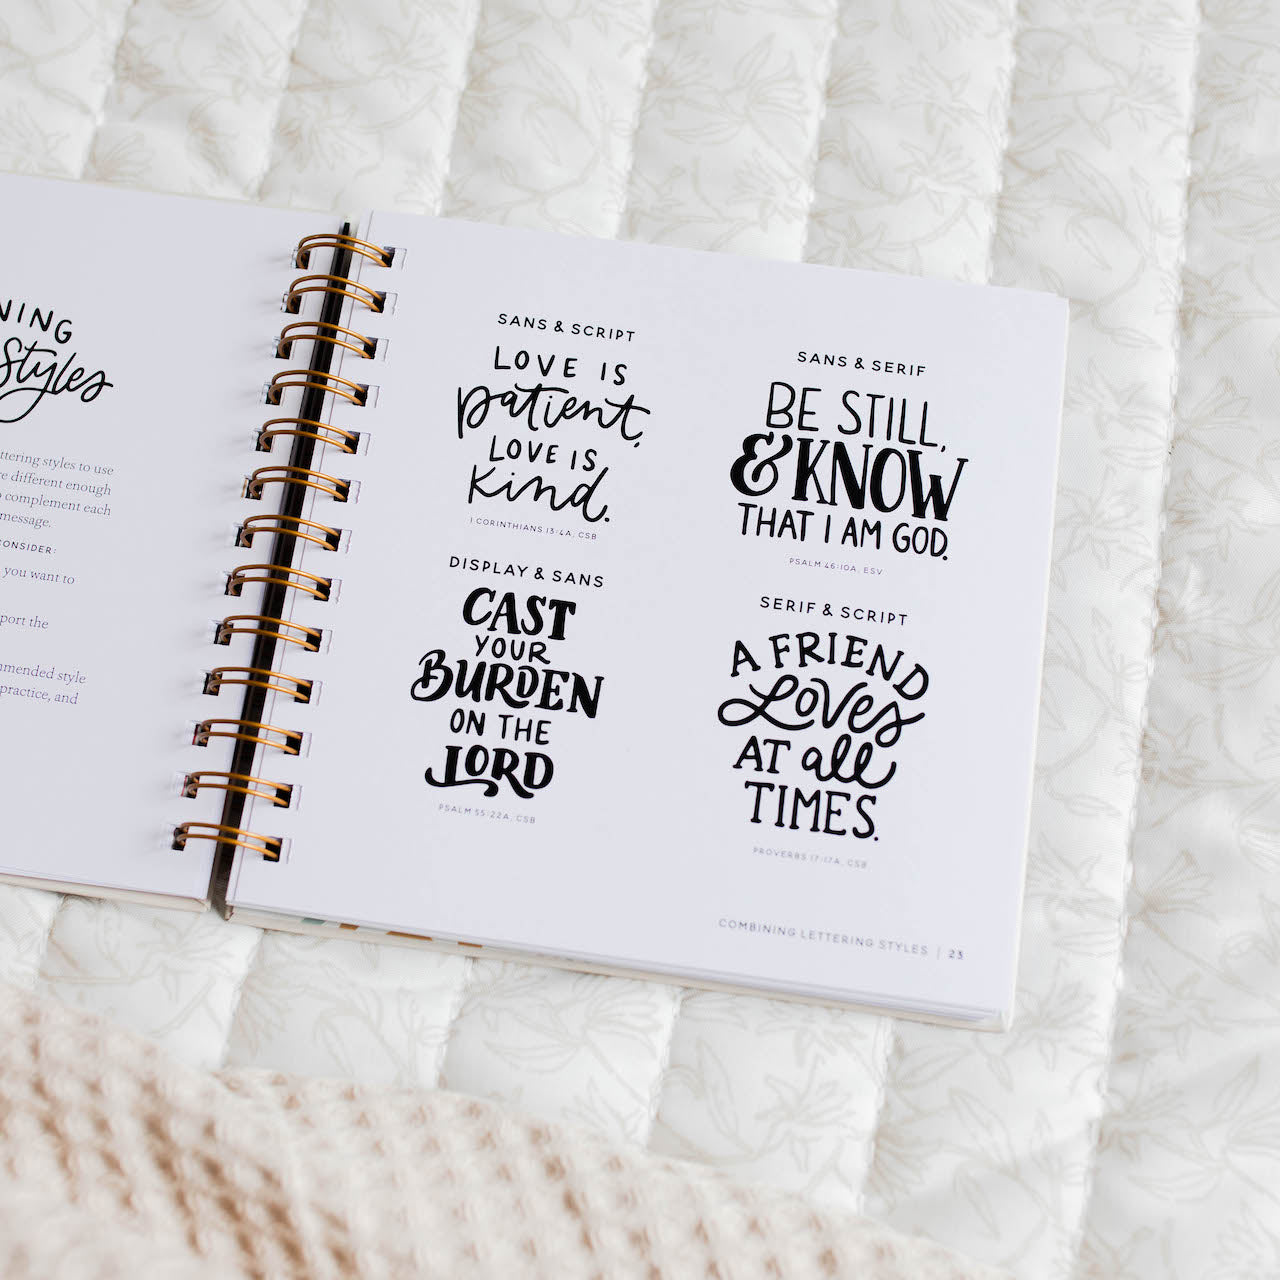 NING
Styles
lettering styles to use
different enough
complement each
message.
CONSIDER:
you want to
port the
style
practice, and
SANS & SCRIPT
LOVE IS
patient,
LOVE IS
kind.
1 CORINTHIANS 13:4A, CSB
DISPLAY & SANS
CAST
YOUR
BURDEN
ON THE
LORD
PSALM 55:22A, CSB
SANS & SERIF
BE STILL,
& KNOW
THAT I AM GOD.
PSALM 46:10A, ESV
SERIF & SCRIPT
A FRIEND
Loves
AT all
TIMES.
PROVERBS 17:17A, CSB
COMBINING LETTERING STYLES | 23